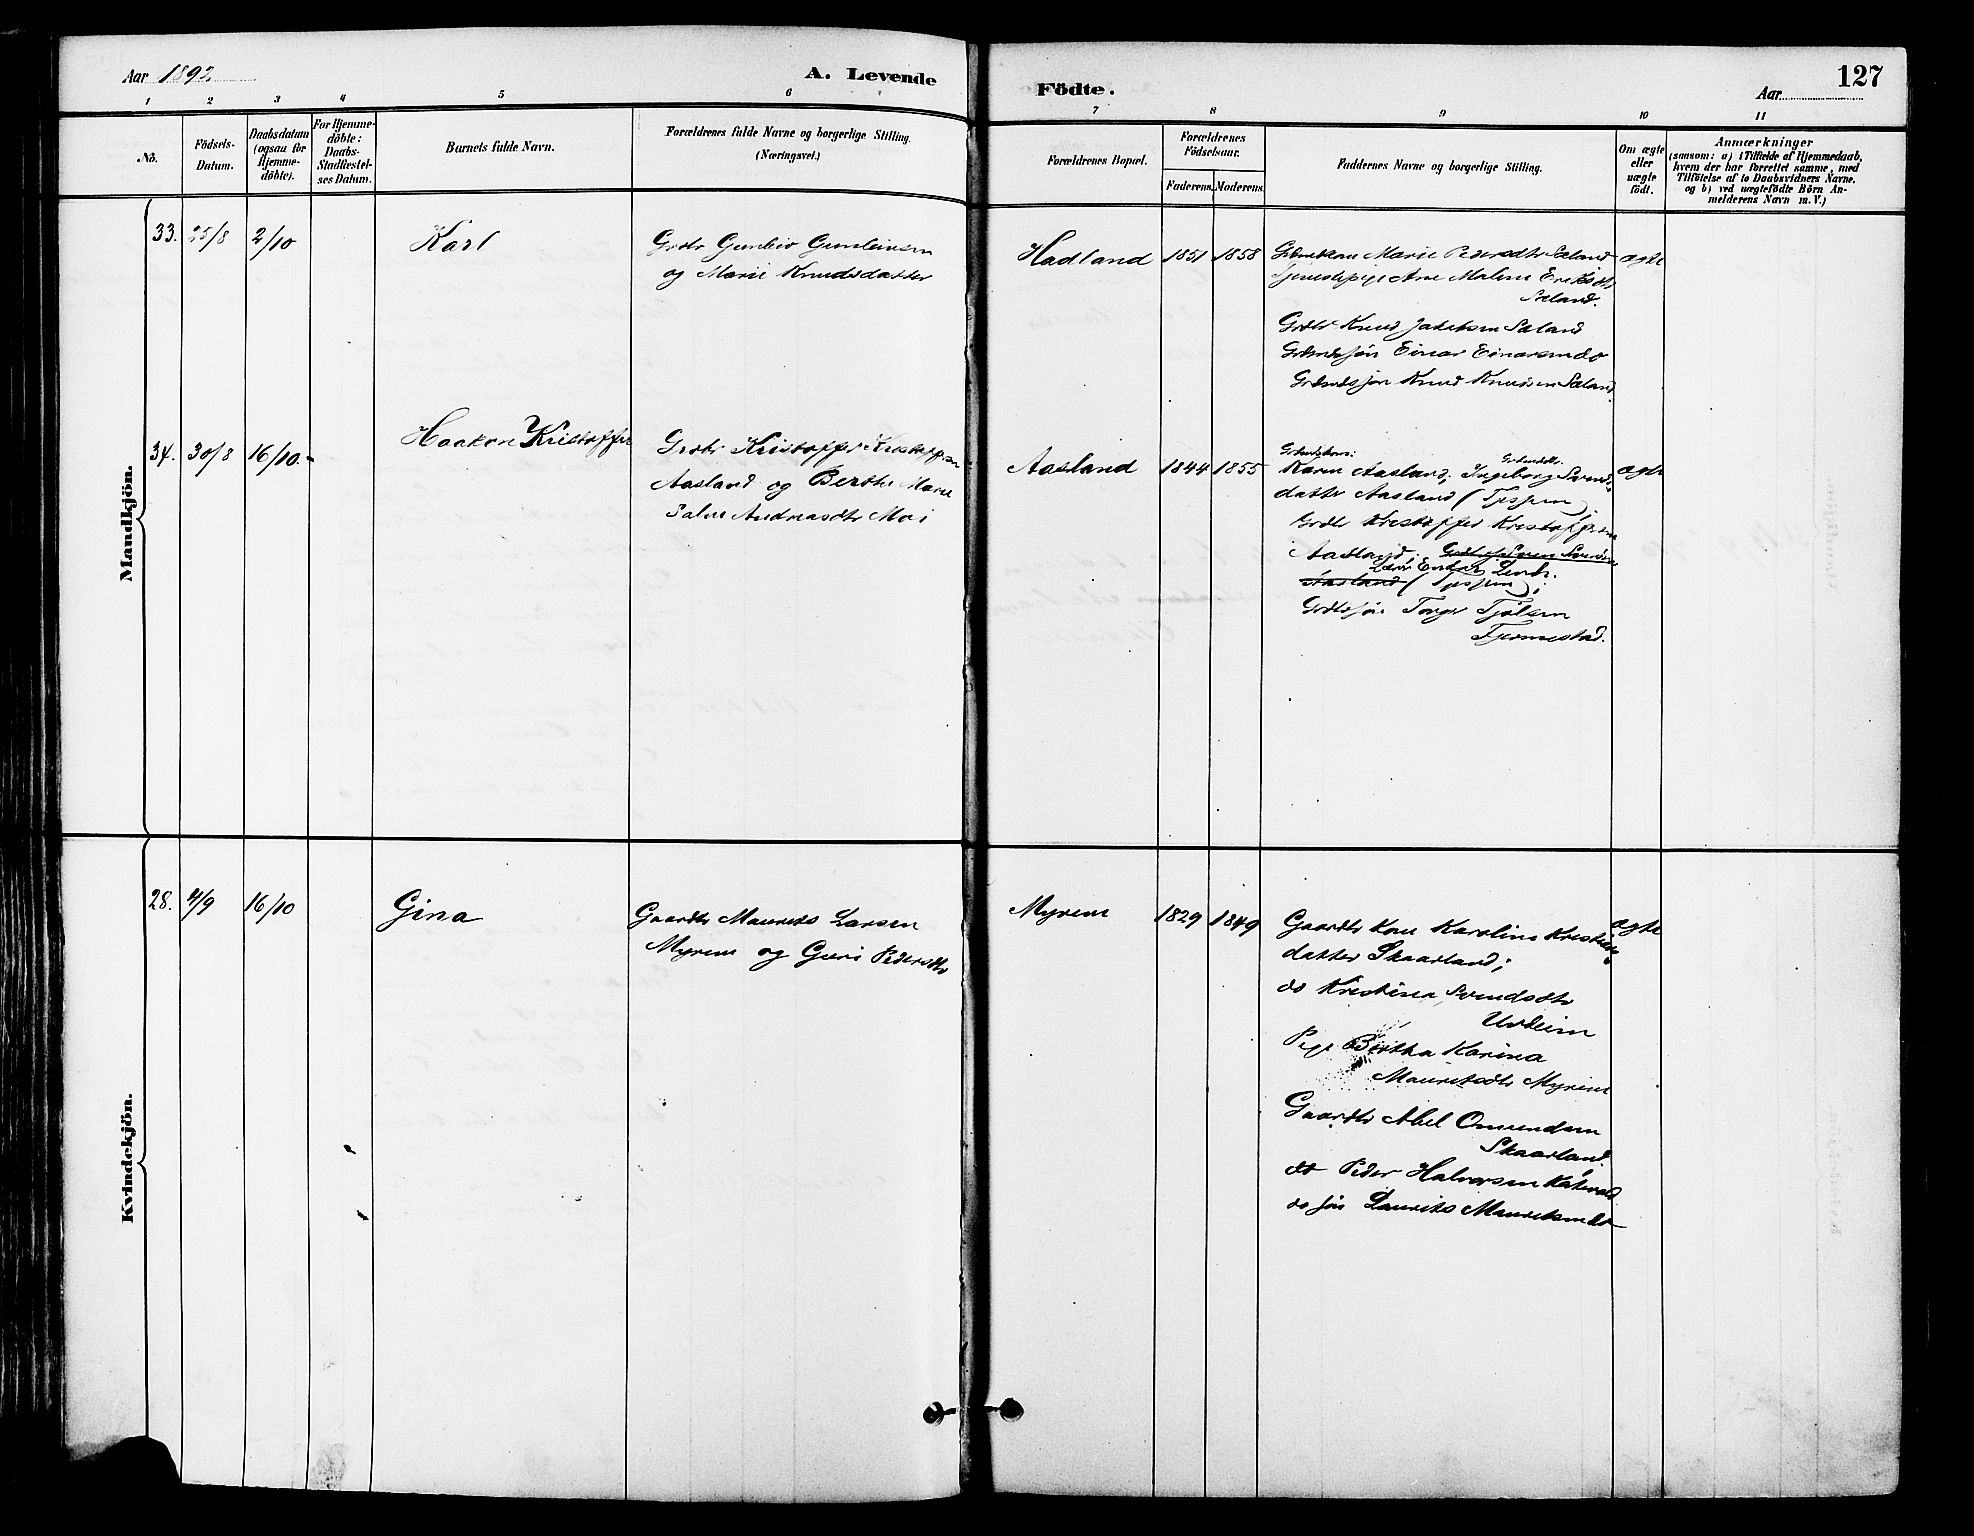 Aar 1892
A. Levende
Födte.
Aar
127
1 2 3 4 5 6 7 8 9 10 11
No.
Födsels-
Datum.
Daabsdatum
(ogsaa for
Hjemme-
döbte).
For Hjemme-
döbte:
Daabs-
Stadfæstel-
ses Datum.
Barnets fulde Navn.
Forældrenes fulde Navne og borgerlige Stilling.
(Næringsvei.)
Forældrenes Bopæl.
Forældrenes
Födselsaar.
Faderens. Moderens.
Faddernes Navne og borgerlige Stilling.
Om ægte
eller
uægte
födt.
Anmærkninger
(saasom: a) i Tilfælde af Hjemmedaab,
hvem der har forrettet samme, med
Tilföielse af to Daabsvidners Navne.
og b) ved uægtefödte Börn An-
melderens Navn m. V.)
Mandkjön.
33. 25/8 2/10 Karl
Grdbr Gunleiv Gunleivsen
og Marie Knudsdatter
Hadland 1851 1858
Marie Pedersdtr Sæland
Tjenestepige Ane Malene Eriksdtr
Sæland.
Grdbr Knud Jakobsen Sæland
Einar Einarsen do
Knud Knudsen Sæland
ægte
34. 30/8 16/10. Haakon Kristoffer
Grdbr Kristoffer Kristoffersen
Aasland og Berthe Marie
Salve Andreasdtr Moi
Aasland 1844 1855
Karen Aasland; Ingeborg Svends-
datter Aasland (Tjessem);
Grdbr Kristoffer Kristoffersen
Aasland; Grdbr Sven Svendsen
Lærer Endre Lende.
Aasland (Tjessem);
Grdbrsön Torger Tjölsen
Tjermestad.
ægte
Kvindekjön.
28. 4/9 16/10 Gina
Gaardbr Maurits Larsen
Myrem og Guri Pedersdtr
Myrem 1829 1849
Gaardbr Kone Karoline Kristens-
datter Skaarland;
do Kristina Svendsdtr
Pige Bertha Karina
Mauritsdtr Myrem
Gaardbr Abel Omundsen
Skaarland.
do Peder Halvorsen
do sön Laurits Mauritsen do
ægte